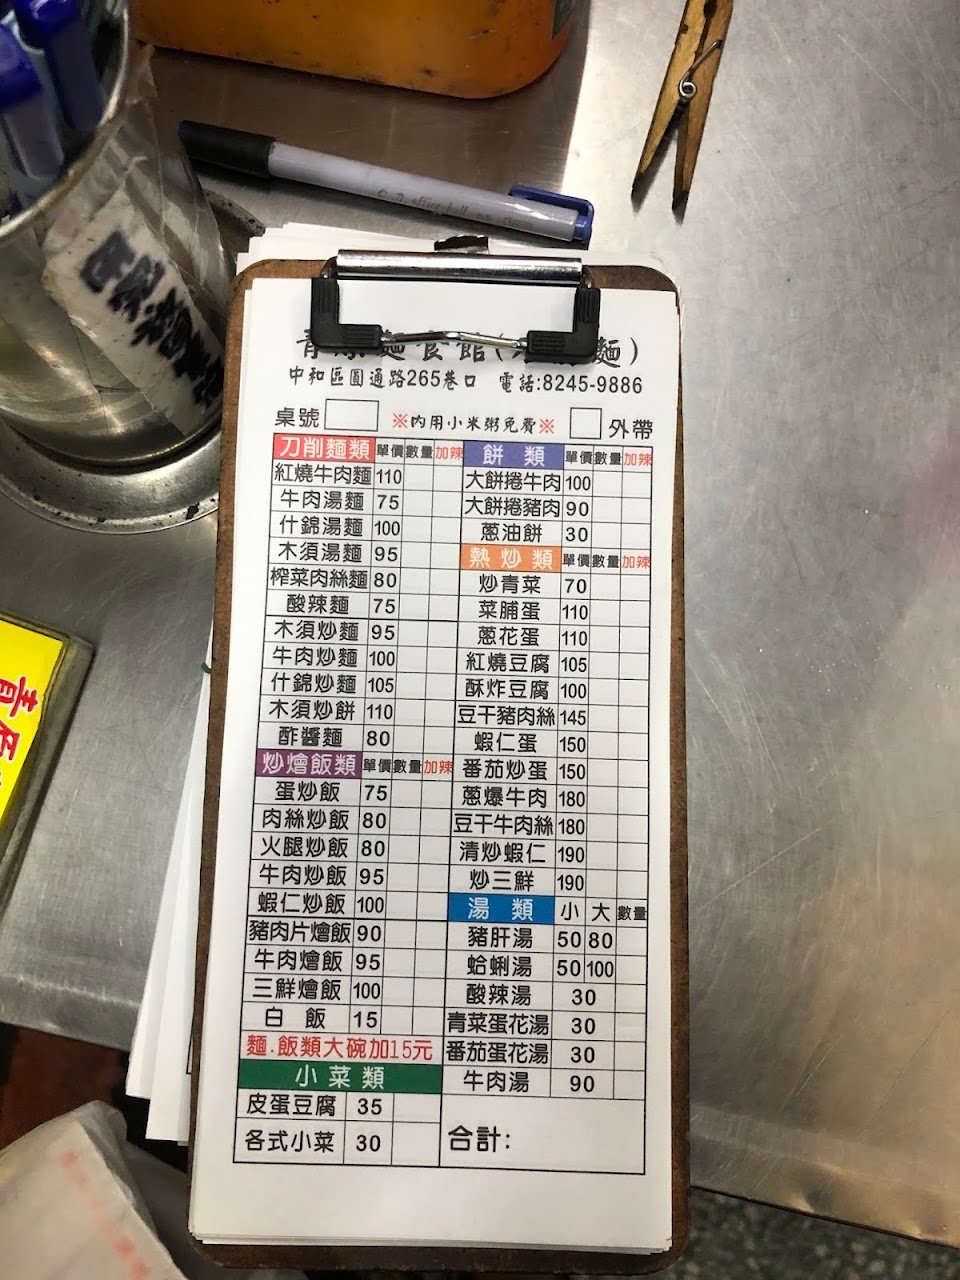 麵食館(
麵)
中和區圓通路265巷口 電話:8245-9886
桌號 ※內用小米粥免費※ 外帶
刀削麵類 單價 數量 加辣
紅燒牛肉麵 110
牛肉湯麵 75
什錦湯麵 100
木須湯麵 95
榨菜肉絲麵 80
酸辣麵 75
木須炒麵 95
牛肉炒麵 100
什錦炒麵 105
木須炒餅 110
酢醬麵 80
炒燴飯類 單價 數量 加辣
蛋炒飯 75
肉絲炒飯 80
火腿炒飯 80
牛肉炒飯 95
蝦仁炒飯 100
豬肉片燴飯 90
牛肉燴飯 95
三鮮燴飯 100
白飯 15
麵.飯類大碗加15元
小菜類
皮蛋豆腐 35
各式小菜 30
餅類 單價 數量 加辣
大餅捲牛肉 100
大餅捲豬肉 90
蔥油餅 30
熱炒類 單價 數量 加辣
炒青菜 70
菜脯蛋 110
蔥花蛋 110
紅燒豆腐 105
酥炸豆腐 100
豆干豬肉絲 145
蝦仁蛋 150
番茄炒蛋 150
蔥爆牛肉 180
豆干牛肉絲 180
清炒蝦仁 190
炒三鮮 190
湯類 小 大 數量
豬肝湯 50 80
蛤蜊湯 50 100
酸辣湯 30
青菜蛋花湯 30
番茄蛋花湯 30
牛肉湯 90
合計: